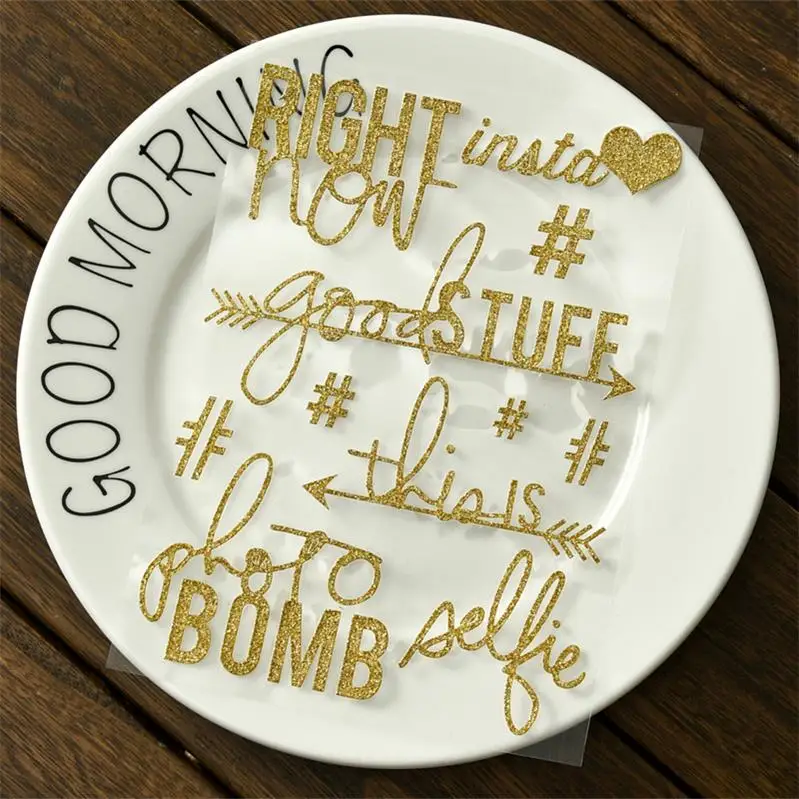 GOOD MORNING
RIGHT
now
insta
#
good STUFF
# # # #
this is
photo
BOMB
selfie